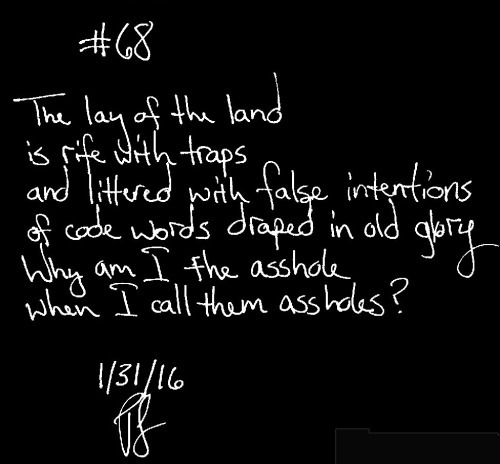 #68
The lay of the land
is rife with traps
and littered with false intentions
of code words draped in old glory
Why am I the asshole
when I call them assholes?
1/31/16